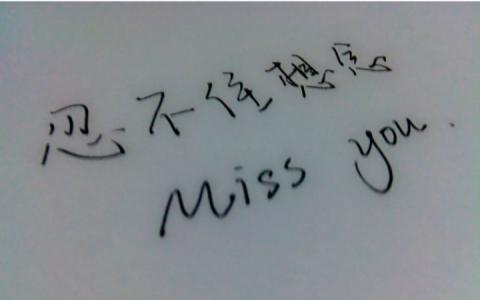 忍不住想念
Miss you.